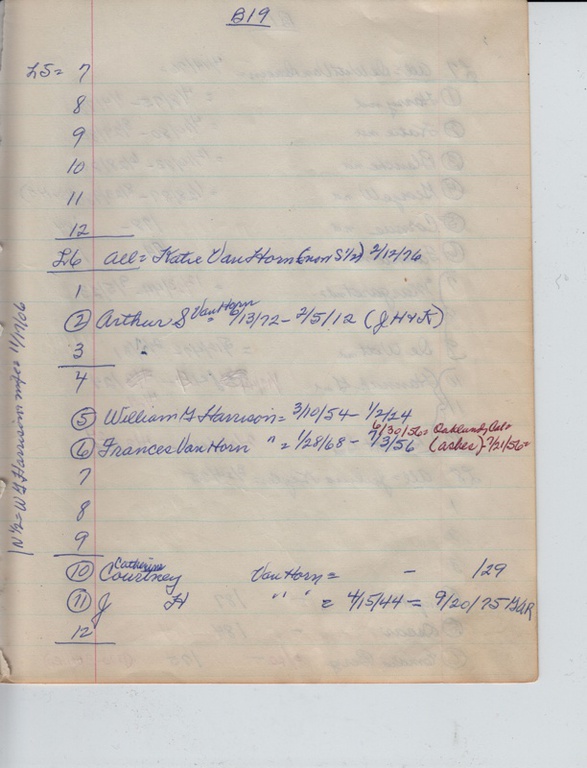 B19
L5 = 7
8
9
10
11
12
L6 all = Katie Van Horn (now S½) 2/12/76
1
② Arthur S Van Horn = 6/13/72 - 2/5/12 (J H & K)
3
4
⑤ William G Harrison = 3/10/54 - 1/2/24
6/30/56 = Oakland, Cal
⑥ Frances Van Horn " = 1/28/68 - 7/3/56 (ashes) - 7/21/56 =
7
8
9
Catherine
⑩ Courtney Van Horn = - /29
⑪ J H " " = 4/15/44 = 9/20/75 GAR
12
N½ = W G Harrison 11/17/06